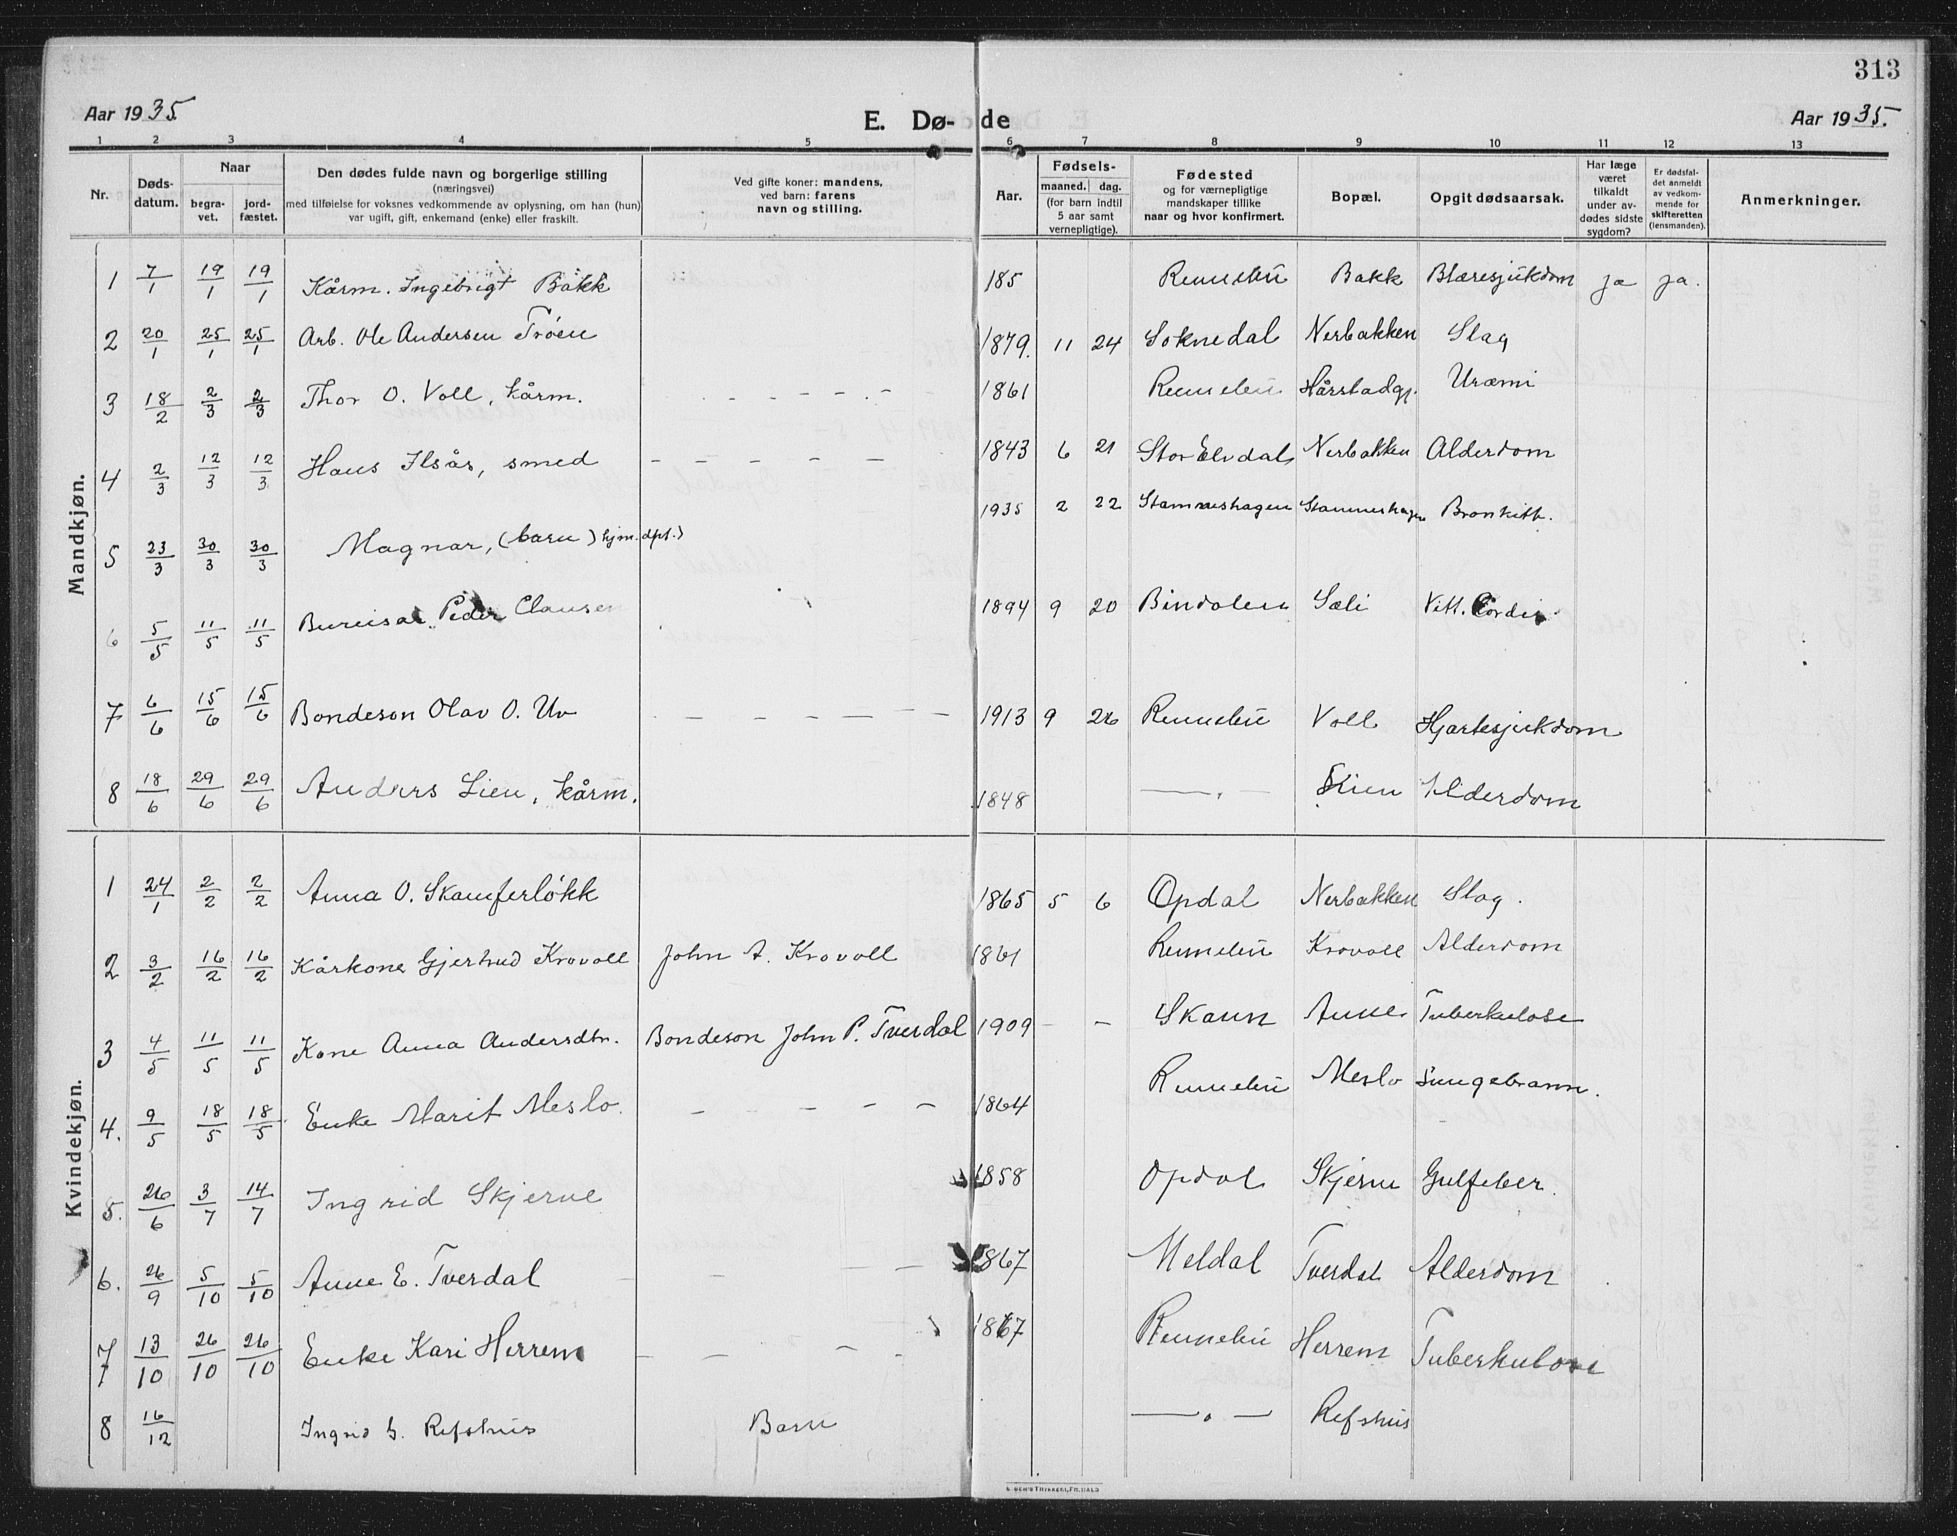 313
Aar 1935.
E. Dø-
de
Aar 1935.
1 2 3 4 5 6 7 8 9 10 11 12 13
Nr.
Døds-
datum.
Naar
begra-
vet.
jord-
fæstet.
Den dødes fulde navn og borgerlige stilling
(næringsvei)
med tilføielse for voksnes vedkommende av oplysning, om han (hun)
var ugift, gift, enkemand (enke) eller fraskilt.
Ved gifte koner: mandens,
ved barn: farens
navn og stilling.
Aar.
Fødsels-
maaned. dag.
(for barn indtil
5 aar samt
vernepligtige).
Fødested
og for værnepligtige
mandskaper tillike
naar og hvor konfirmert.
Bopæl.
Opgit dødsaarsak.
Har læge
været
tilkaldt
under av-
dødes sidste
sygdom?
Er dødsfal-
det anmeldt
av vedkom-
mende for
skifteretten
(lensmanden).
Anmerkninger.
Mandkjøn.
1 7/1 19/1 19/1 Kårm. Ingebrigt Bakk 185 Rennebu Bakk Blæresjukdom ja ja.
2 20/1 25/1 25/1 Arb. Ole Andersen Trøen 1879. 11 24 Soknedal Nerbakken Slag
3 18/2 2/3 2/3 Thor O. Voll, kårm. - - - - - - 1861 Rennebu Hårstadgj. Uræmi
4 2/3 12/3 12/3 Hans Ilsås, smed - - - - - - 1843 6 21 Stor Elvdal Nerbakken Alderdom
5 23/3 30/3 30/3 Magnar, (barn) hjm. dpt.) 1935 2 22 Stamneshagen Stamneshagen Bronkitt.
6 5/5 11/5 11/5 Bureisar Peder Clausen 1894 9 20 Bindalen Sæli Vitt. Cordis
7 6/6 15/6 15/6 Bondeson Olav O. Uv - - - - - - - 1913 9 26 Rennebu Voll Hjartesjukdom
8 18/6 29/6 29/6 Anders Lien, kårm. 1848 —"— Lien Alderdom
Kvindekjøn.
1 24/1 2/2 2/2 Anna O. Skamferløkk 1865 5 6 Opdal Nerbakken Slag.
2 3/2 16/2 16/2 Kårkone Gjertrud Krovoll John A. Krovoll 1861 Rennebu Krovoll Alderdom
3 4/5 11/5 11/5 Kone Anna Andersdtr. Bondeson John P. Tverdal 1909 - - Skaun Aune Tuberkulose
4. 9/5 18/5 18/5 Enke Marit Meslo. - - - - - 1864 Rennebu Meslo Lungebrann.
5. 26/6 3/7 14/7 Ingrid Skjerve 1858 Opdal Skjerve Gulfeber.
6. 26/9 5/10 5/10 Anne E. Tverdal - - - - 1867 Meldal Tverdal Alderdom
7 13/10 26/10 26/10 Enke Kari Herrem - - - - - 1867 Rennebu Herrem Tuberkulose
8 16/12 Ingrid G. Refshus Barn —"— Refshus